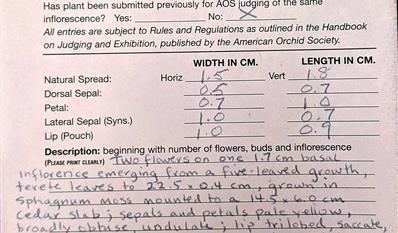 Has plant been submitted previously for AOS judging of the same
inflorescence? Yes: No: X
All entries are subject to Rules and Regulations as outlined in the Handbook
on Judging and Exhibition, published by the American Orchid Society.
WIDTH IN CM. LENGTH IN CM.
Natural Spread: Horiz 1.5 Vert 1.8
Dorsal Sepal: 0.5 0.7
Petal: 0.7 1.0
Lateral Sepal (Syns.) 1.0 0.7
Lip (Pouch) 1.0 0.9
Description: beginning with number of flowers, buds and inflorescence
(PLEASE PRINT CLEARLY) Two flowers on one 1.7 cm basal
inflorence emerging from a five-leaved growth,
terete leaves to 22.5 x 0.4 cm, grown in
sphagnum moss mounted to a 14.5 x 6.0 cm
cedar slab; sepals and petals pale yellow,
broadly obtuse, undulate; lip trilobed, saccate,